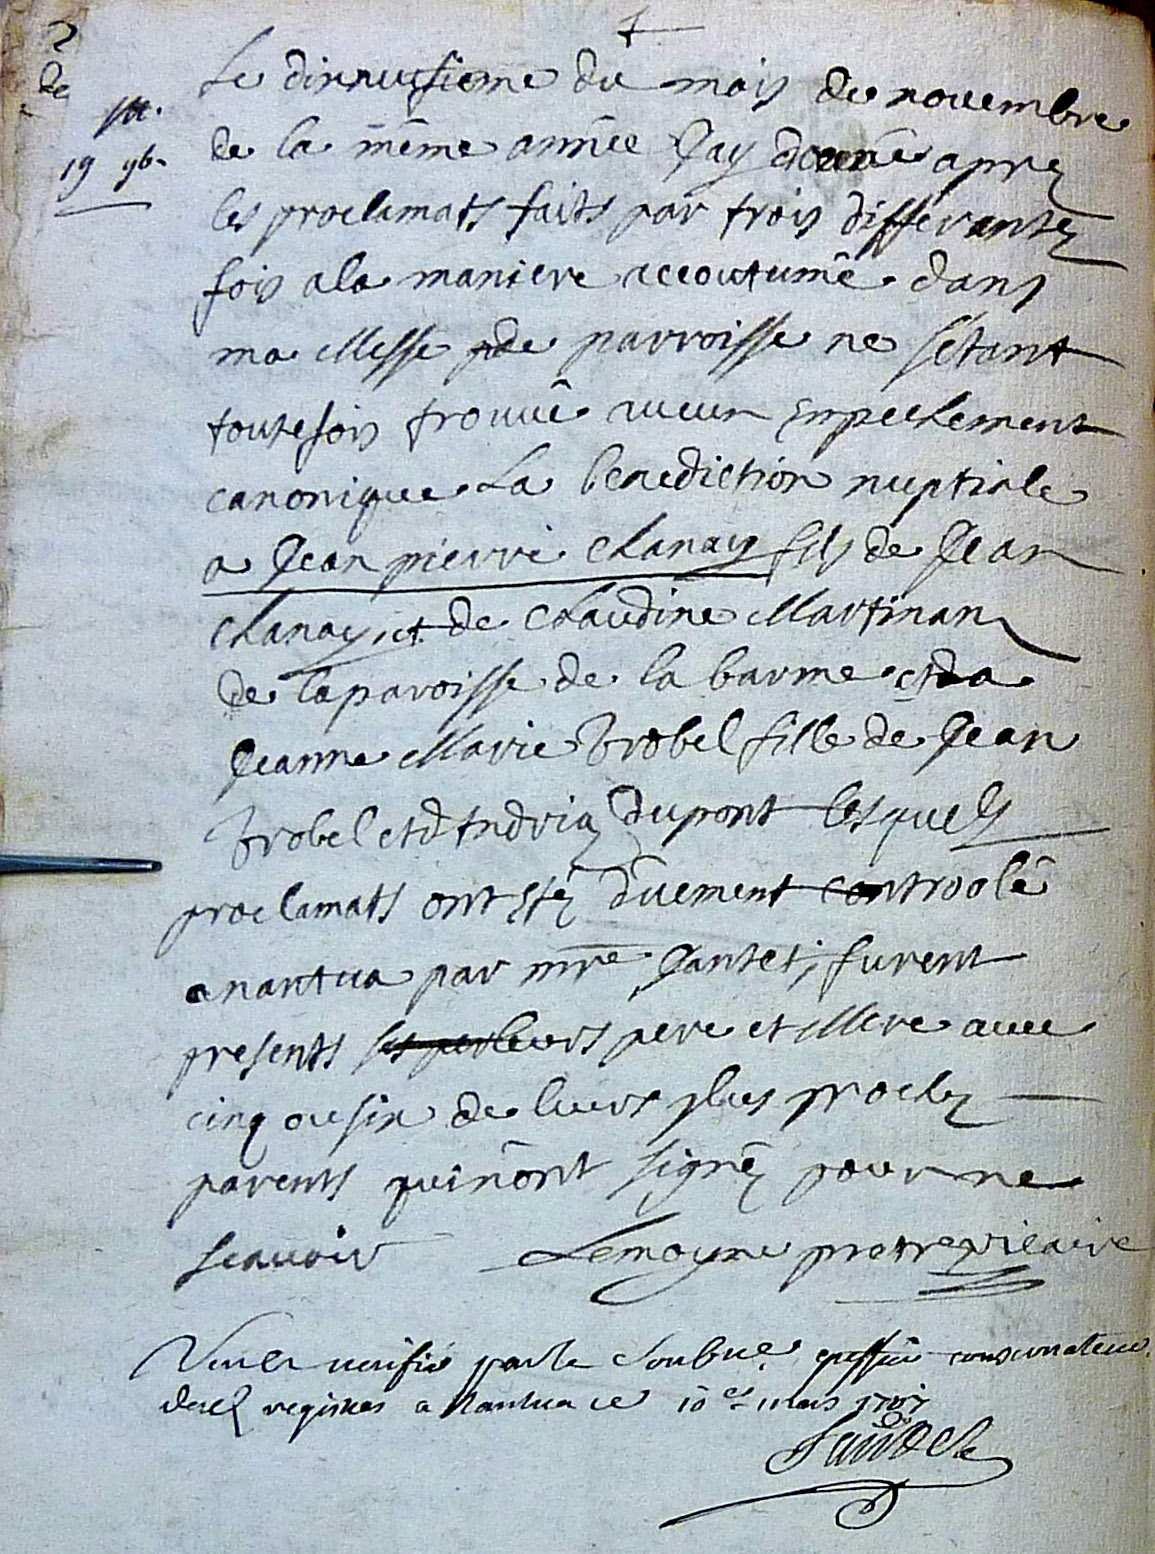 2
de
M.
19 9b.
Le dixnufieme du mois de novembre
de la même année Jay donné aprez
les proclamats faits par trois differantez
fois a la maniere accoutumê dans
ma Messe de parroisse ne sêtant
toutefois trouuê aucun empechement
canonique La benediction nuptiale
a Jean pierre Chanay fils de Jean
Chanay et de Claudine Martinan
de la paroisse de la barme et a
Jeanne Marie Brobel fille de Jean
Brobel et d Andria dupont lesquels
proclamats ont estéz dûement controolé
a nantua par mre Jantet, furent
presents leurs pere et Mere auec
cinq ou six de leurs plus prochez
parents qui nont signéz pour ne
scauoir Lemoyne pretre vicaire
Vu et verifié par le Soubne greffier conservateur
desd registres a Nantua ce 10e mars 1707